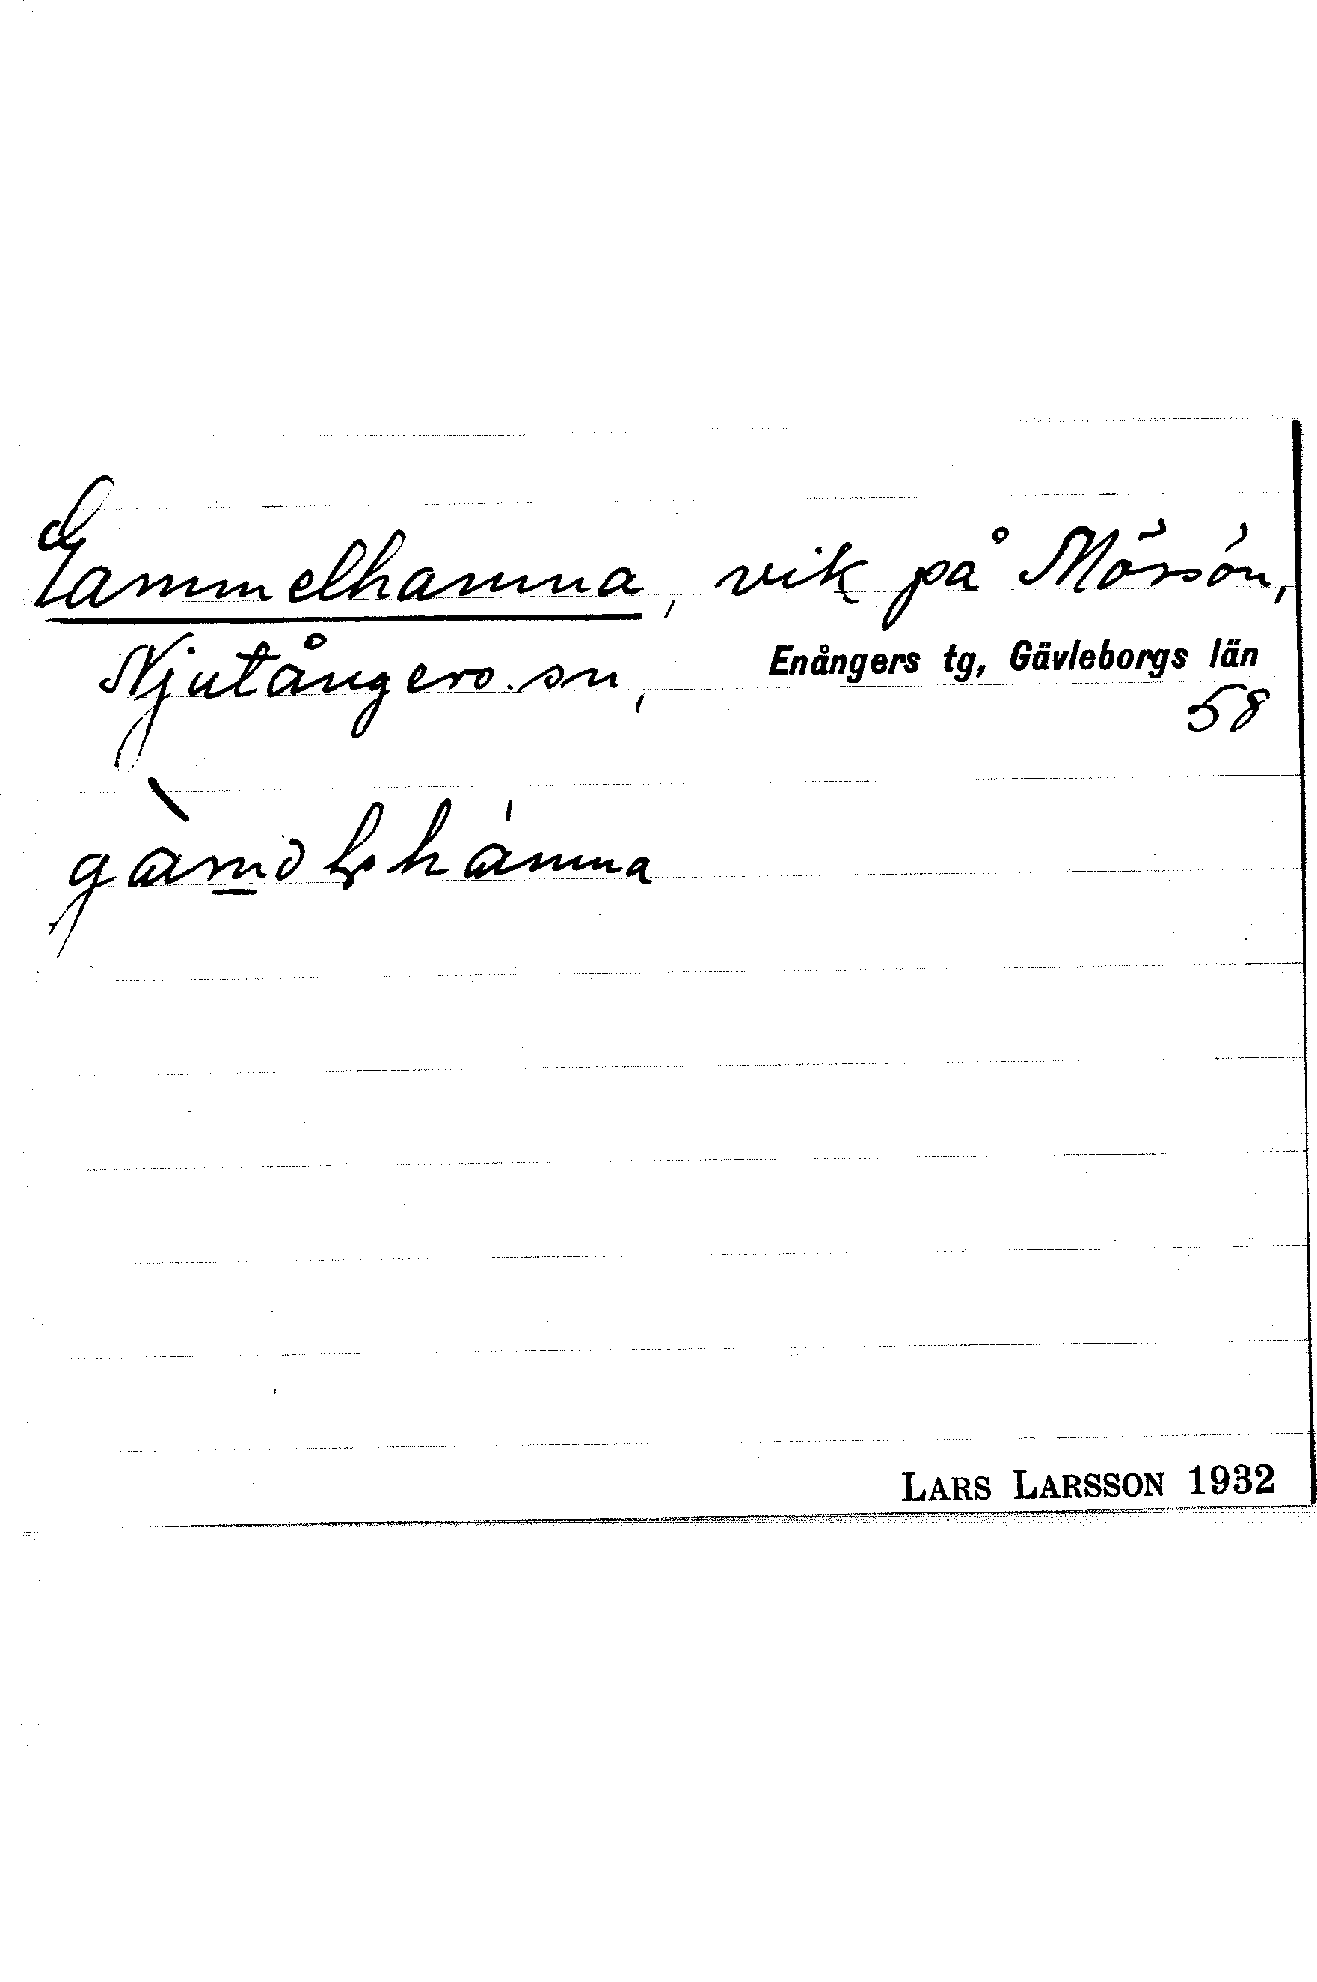 Gammelhamna, vik på Mörsön,
Njutångers sn, Enångers tg, Gävleborgs län
58
gàməlhámna
LARS LARSSON 1932